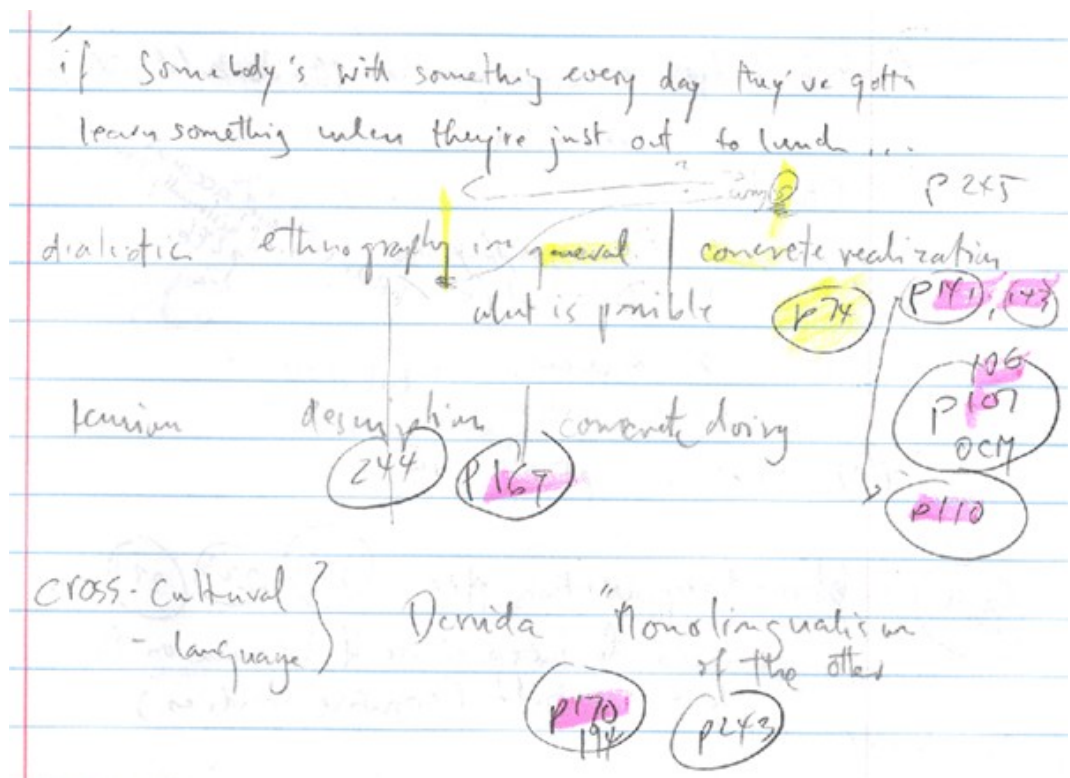 if somebody's with something every day they've gotta
learn something unless they're just out to lunch ...
? p 245
dialectic ethnography in general concrete realization
what is possible p74 p141, 143
106
p107
OCM
tension description concrete doing
244 p167
p110
cross-cultural
-language } Derrida "Monolingualism
of the other
p170 p243
194